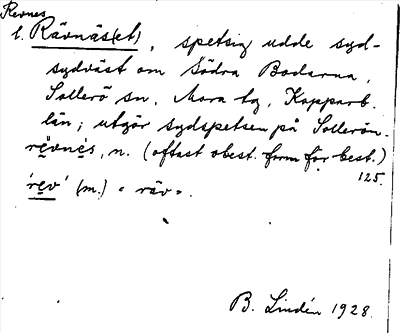 Revnes
l. Rävnäs(et), spetsig udde syd-
sydväst om Södra Bodarna,
Sollerö sn, Mora tg, Kopparb.
län; utgör sydspetsen på Sollerön.
rẹvnẹs, n. (oftast obest. form för best.)
125.
'rẹv' (m.) = räv =.
B. Lindén 1928.